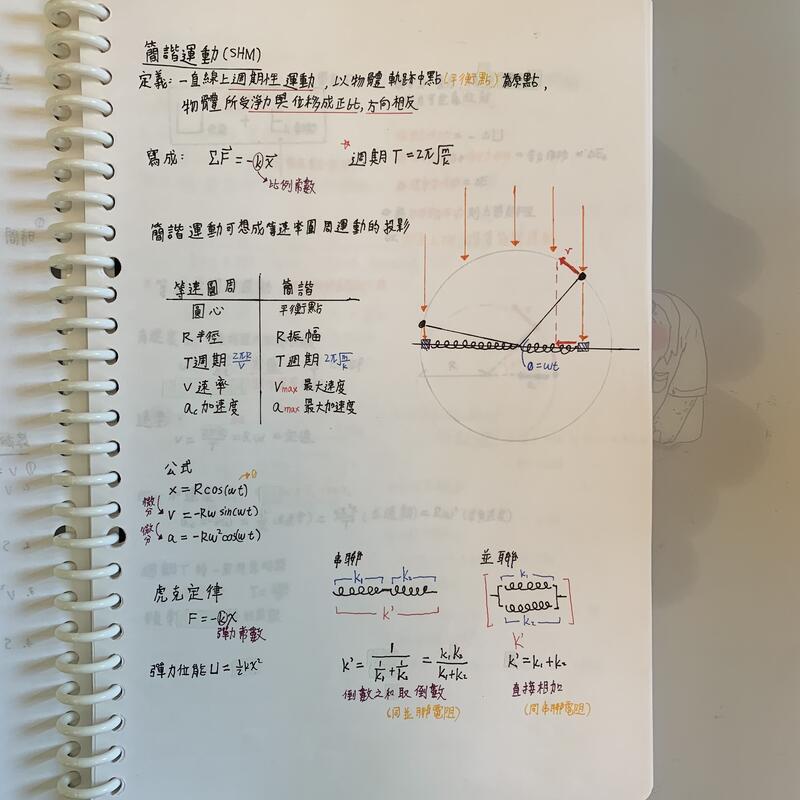 簡諧運動(SHM)
定義：一直線上週期性運動，以物體軌跡中點(平衡點)為原點，
物體所受淨力與位移成正比，方向相反
寫成： ΣF⃗ = -kx⃗
比例常數
* 週期T = 2π√(m/k)
簡諧運動可想成等速率圓周運動的投影
等速圓周 簡諧
圓心 平衡點
R半徑 R振幅
T週期 2πR/V T週期 2π√(m/k)
V速率 Vmax 最大速度
ac加速度 amax 最大加速度
r
θ=ωt
公式
x = Rcos(ωt) →θ
微分
v = -Rω sin(ωt)
微分
a = -Rω²cos(ωt)
虎克定律
F = -kx
彈力常數
彈力位能U = ½kx²
串聯
k₁ k₂
k'
k' = 1/(1/k₁+1/k₂) = k₁k₂/(k₁+k₂)
倒數之和取倒數
(同並聯電阻)
並聯
k₁
k₂
k'
k' = k₁+k₂
直接相加
(同串聯電阻)